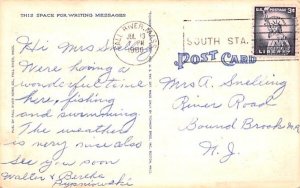 THIS SPACE FOR WRITING MESSAGES
Hi Mrs S
We're having a
wonderful time
here, fishing
and swimming.
The weather
is very nice also
See you soon
Walter & Bertha
FALL RIVER, MASS.
JUL 13
PM
SOUTH STA.
U.S. POSTAGE
3¢
LIBERTY
POST CARD
Mrs A. Snelling
River Road
Bound Brook
N. J.